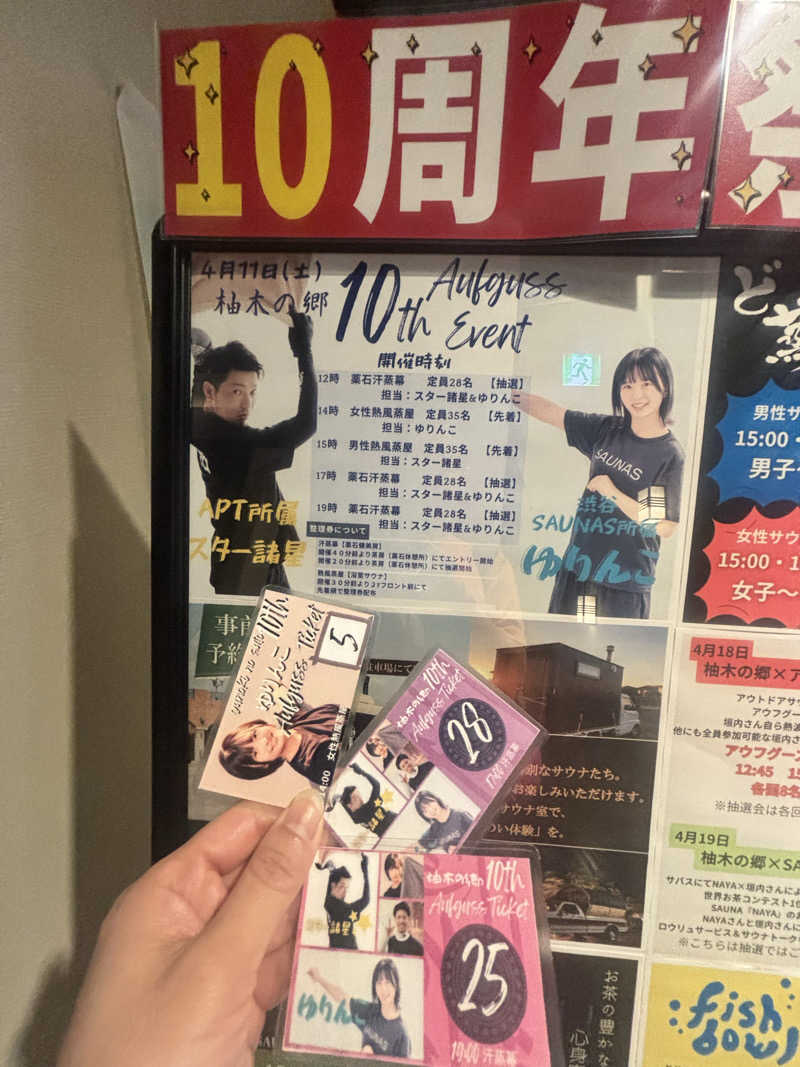 10周年祭
4月11日(土)
柚木の郷
10th Aufguss Event
開催時刻
12時 薬石汗蒸幕 定員28名 【抽選】
担当：スター諸星&ゆりんこ
14時 女性熱風蒸屋 定員35名 【先着】
担当：ゆりんこ
15時 男性熱風蒸屋 定員35名 【先着】
担当：スター諸星
17時 薬石汗蒸幕 定員28名 【抽選】
担当：スター諸星&ゆりんこ
19時 薬石汗蒸幕 定員28名 【抽選】
担当：スター諸星&ゆりんこ
整理券について
開催４０分前より茶房（薬石休憩所）にてエントリー開始
開催２０分前より茶房（薬石休憩所）にて抽選開始
熱風蒸屋【浴室サウナ】
開催３０分前より2Fフロント前にて
先着順で整理券配布
APT所属
スター諸星
SAUNAS
渋谷
SAUNAS所属
ゆりんこ
ど
蒸
男性サ
15:00・
男子
女性サウ
15:00・1
女子〜
事前
予約
駐車場にて
別なサウナたち。
お楽しみいただけます。
サウナ室で、
い体験」を。
4月18日
柚木の郷×ア
アウトドアサ
アウフグー
垣内さん自ら熱波
他にも全員参加可能な垣内さ
アウフグース
12:45 15
各回8名
※抽選会は各回
4月19日
柚木の郷×SA
サバスにてNAYA×垣内さんによ
世界お茶コンテスト1位
SAUNA『NAYA』の
NAYAさんと垣内さんに
ロウリュサービス&サウナトーク
※こちらは抽選ではご
お茶の豊かな
心身
fish
bowl
10th
ゆりんこ
Aufguss Ticket
5
女性熱風蒸屋
柚木の郷 10th
Aufguss Ticket
28
17:00 汗蒸幕
スター諸星
ゆりんこ
柚木の郷 10th
Aufguss Ticket
25
19:00 汗蒸幕
スター諸星
ゆりんこ